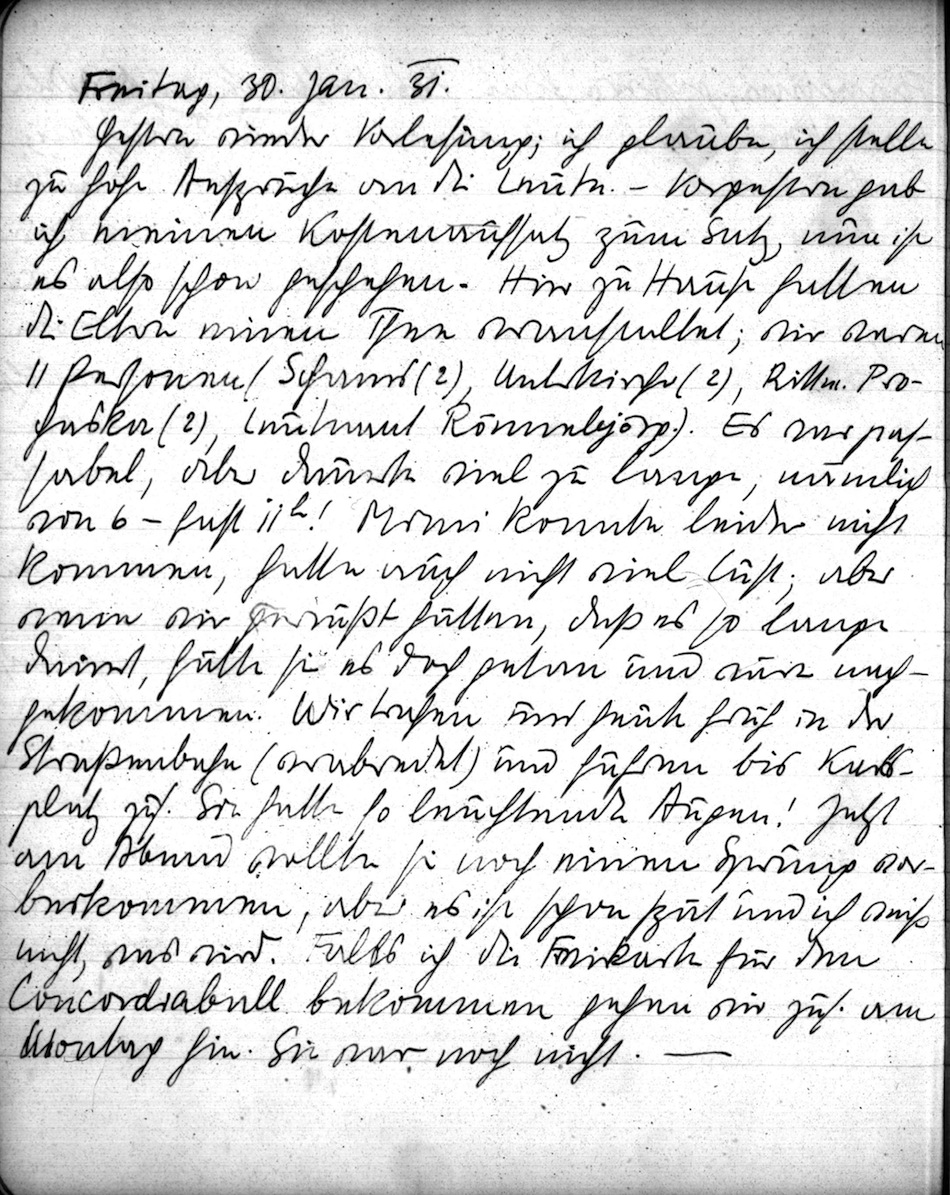 Freitag, 30. Jan. 31.
Gestern wieder Vorlesung; ich glaube, ich stelle
zu hohe Ansprüche an die Leute. – Vorgestern gab
ich meinen Kostenaufsatz zum Satz, nun ist
es also schon geschehen. Hier zu Hause hatten
die Eltern einen Thee veranstaltet; wir waren
11 Personen (2), Unterkirche (2), Rittm. Pro-
haska (2), Leutnant Es war pas-
sabel, aber dauerte viel zu lange, nämlich
von 6 – fast 11h! Mimi konnte leider nicht
kommen, hatte auch nicht viel Lust; aber
wenn wir gewußt hätten, daß es so lange
dauert, hätte sie es doch getan und wäre nach-
gekommen. Wir trafen uns heute früh in der
Straßenbahn (verabredet) und fuhren bis Karls-
platz zus. Sie hatte so leuchtende Augen! Jetzt
am Abend wollte sie noch einen Sprung vor-
beikommen, aber es ist schon spät und ich weiß
nicht, was wird. Falls ich die Freikarte für den
Concordiaball bekommen gehen wir zus. am
Montag hin. Sie war noch nicht. —